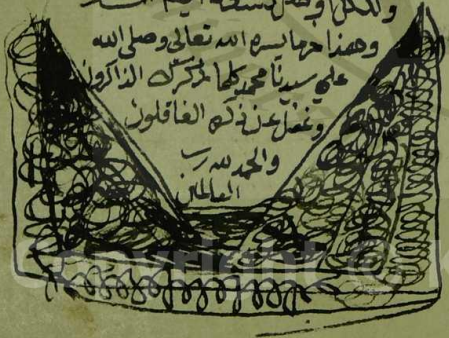 وهذا ما يسره الله تعالى وصلى الله
على سيدنا محمد كلما ذكرك الذاكرون
وغفل عن ذكره الغافلون
والحمد لله رب
العالمين
Copyright ©